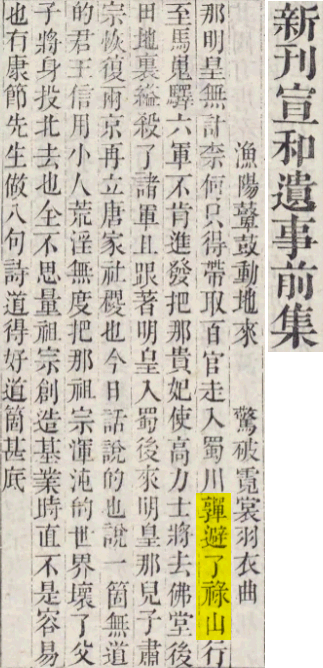 新刊宣和遺事前集
漁陽鼙鼓動地來 驚破霓裳羽衣曲
那明皇無計奈何只得帶取百官走入蜀川嚲避了祿山行
至馬嵬驛六軍不肯進發把那貴妃使高力士將去佛堂後
田地裏縊殺了諸軍且跟著明皇入蜀後來明皇那兒子肅
宗恢復兩京再立唐家社稷也今日話說的也說一箇無道
的君王信用小人荒淫無度把那祖宗渾沌的世界壞了父
子將身投北去也全不思量祖宗創造基業時直不是容易
也有康節先生做八句詩道得好道箇甚底